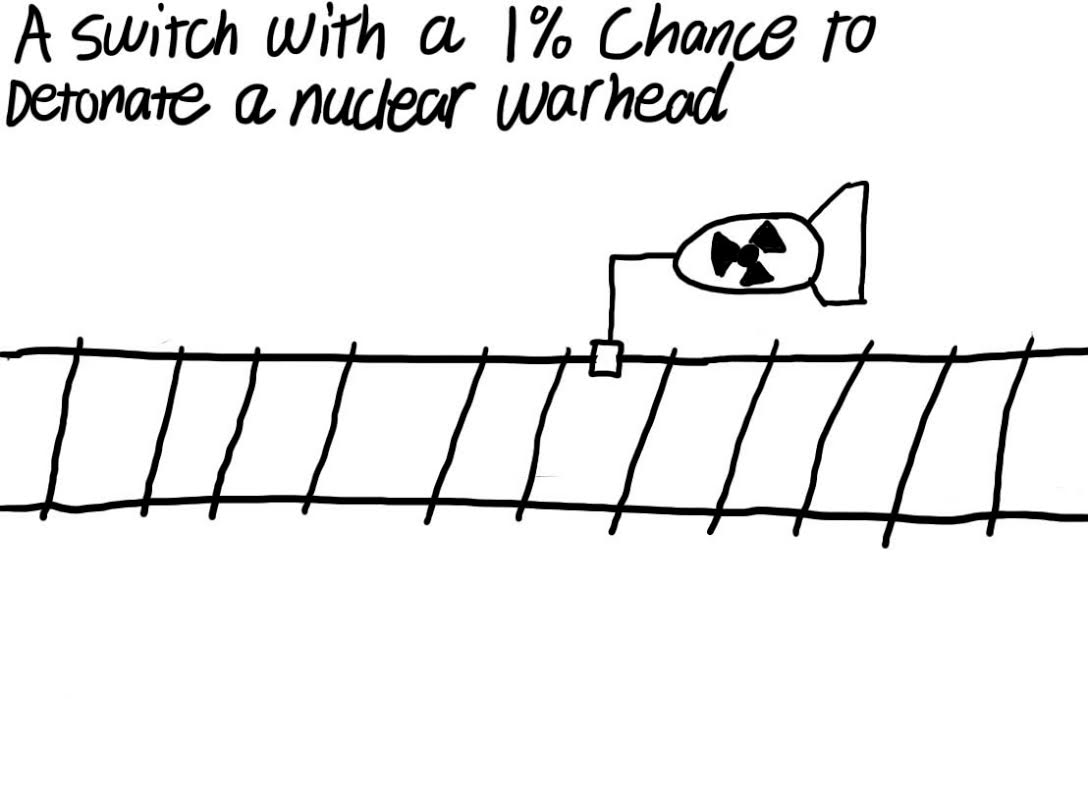 A switch with a 1% Chance to
Detonate a nuclear warhead